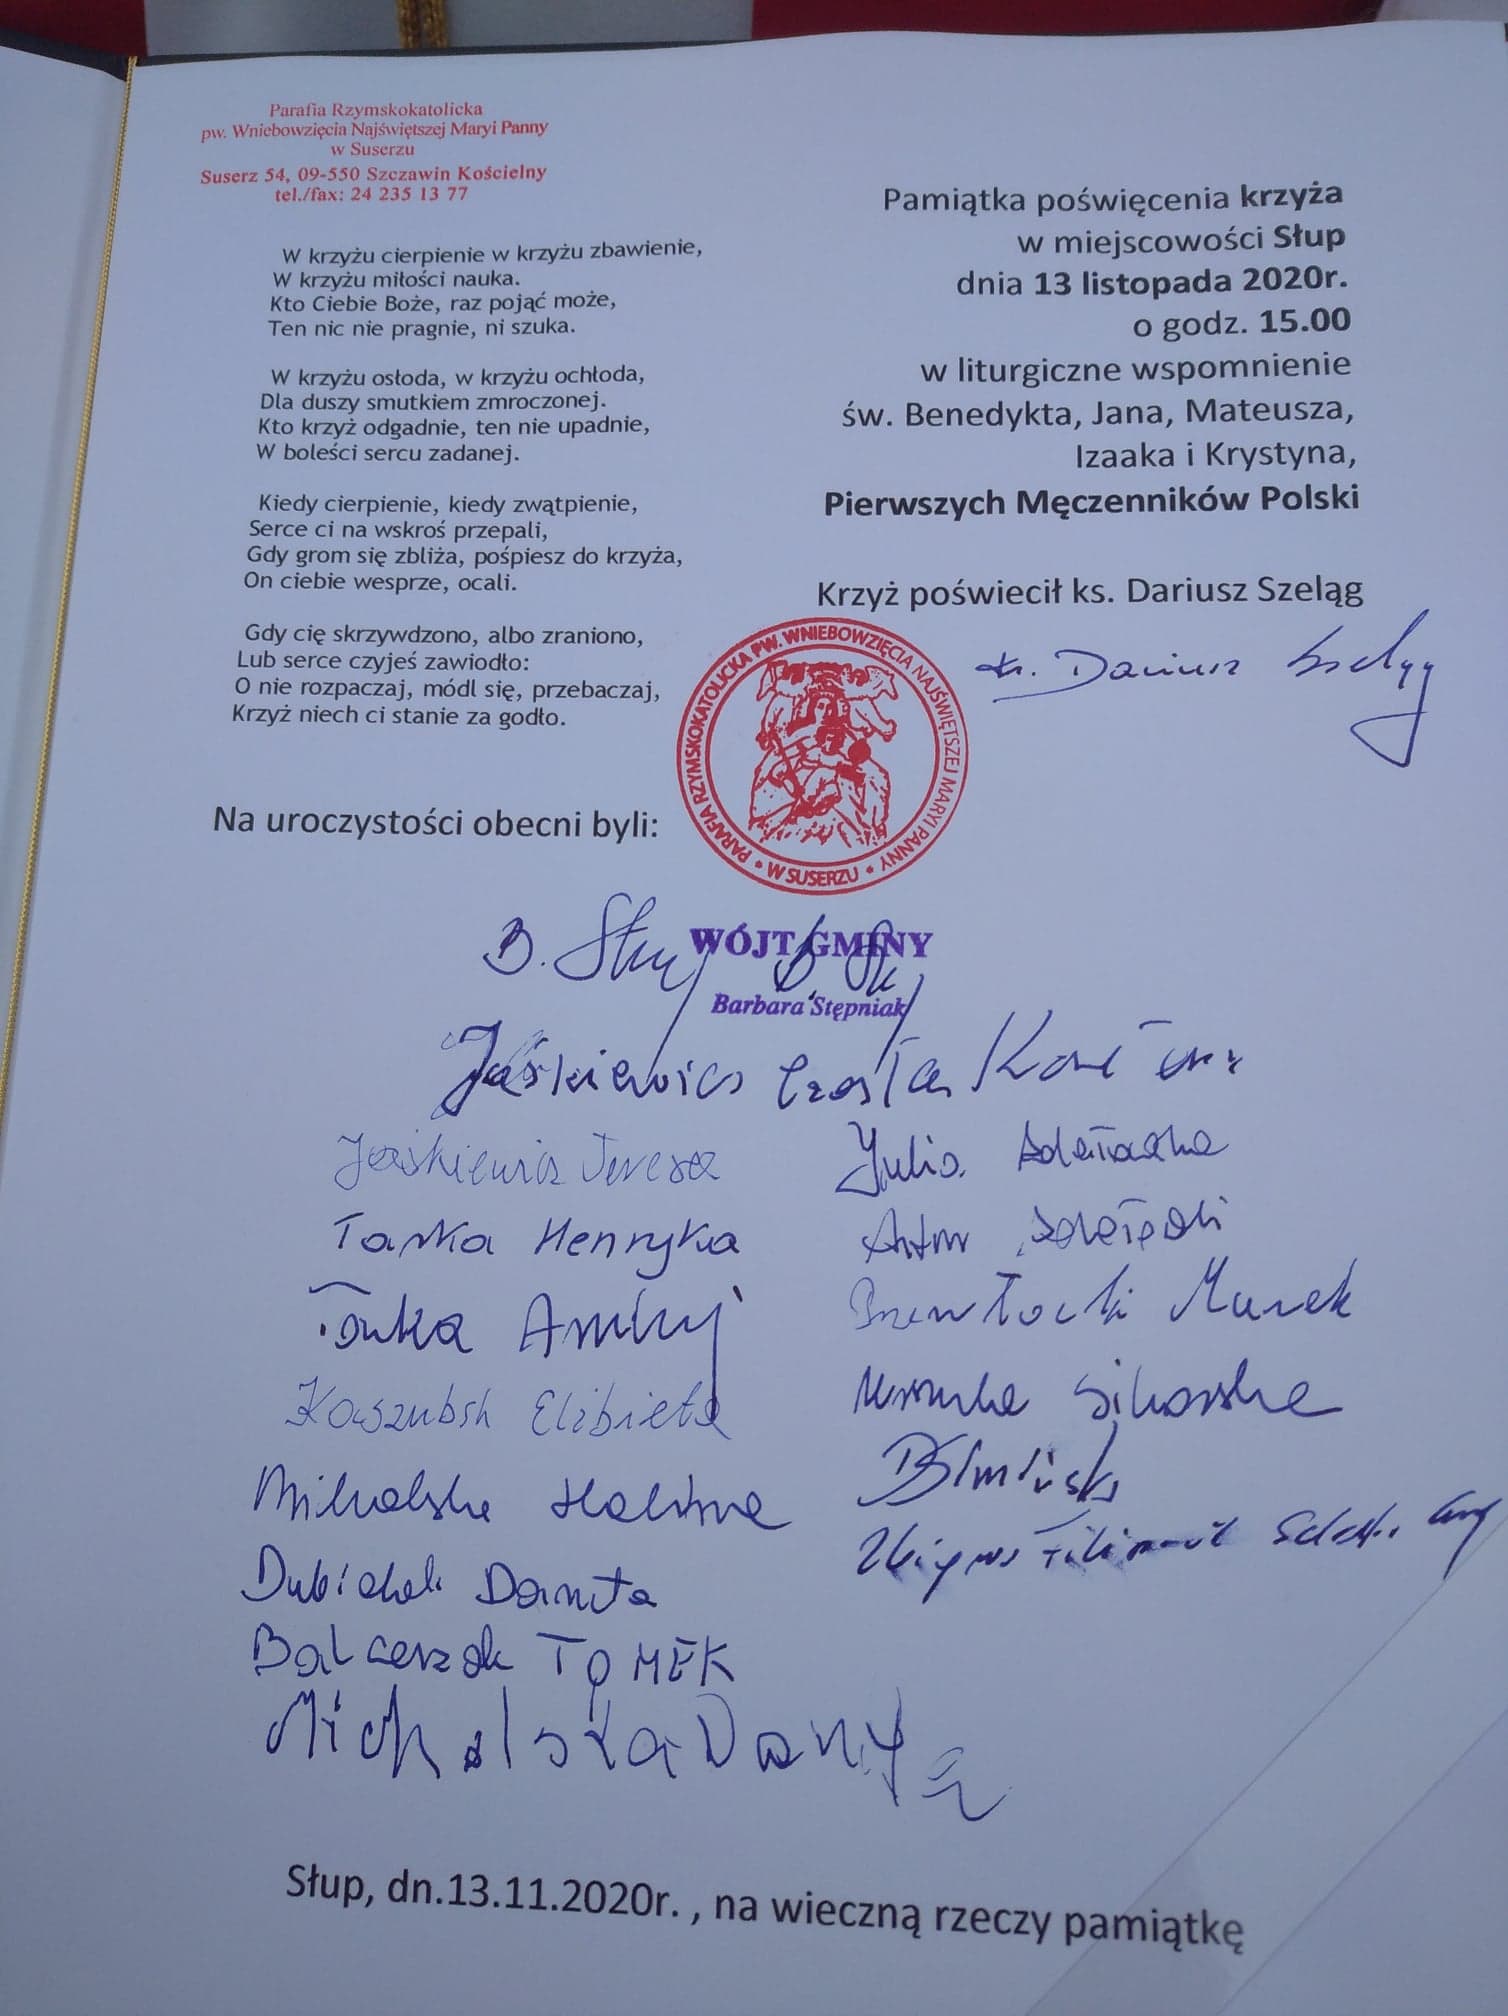 Parafia Rzymskokatolicka
pw. Wniebowzięcia Najświętszej Maryi Panny
w Suserzu
Suserz 54, 09-550 Szczawin Kościelny
tel./fax: 24 235 13 77
Pamiątka poświęcenia krzyża
w miejscowości Słup
dnia 13 listopada 2020r.
o godz. 15.00
w liturgiczne wspomnienie
św. Benedykta, Jana, Mateusza,
Izaaka i Krystyna,
Pierwszych Męczenników Polski
Krzyż poświecił ks. Dariusz Szeląg
ks. Dariusz Szeląg
W krzyżu cierpienie w krzyżu zbawienie,
W krzyżu miłości nauka.
Kto Ciebie Boże, raz pojąć może,
Ten nic nie pragnie, ni szuka.
W krzyżu osłoda, w krzyżu ochłoda,
Dla duszy smutkiem zmroczonej.
Kto krzyż odgadnie, ten nie upadnie,
W boleści sercu zadanej.
Kiedy cierpienie, kiedy zwątpienie,
Serce ci na wskroś przepali,
Gdy grom się zbliża, pośpiesz do krzyża,
On ciebie wesprze, ocali.
Gdy cię skrzywdzono, albo zraniono,
Lub serce czyjeś zawiodło:
O nie rozpaczaj, módl się, przebaczaj,
Krzyż niech ci stanie za godło.
PARAFIA RZYMSKOKATOLICKA PW. WNIEBOWZIĘCIA NAJŚWIĘTSZEJ MARYI PANNY • W SUSERZU •
Na uroczystości obecni byli:
WÓJT GMINY
Barbara Stępniak
Jaśkiewicz
Jaśkiewicz Teresa
Julia
Tarka Henryka
Marek
Elżbieta
Sikorska
Halina
Danuta
Balcerzak TOMEK
Michalska Danuta
Słup, dn.13.11.2020r. , na wieczną rzeczy pamiątkę